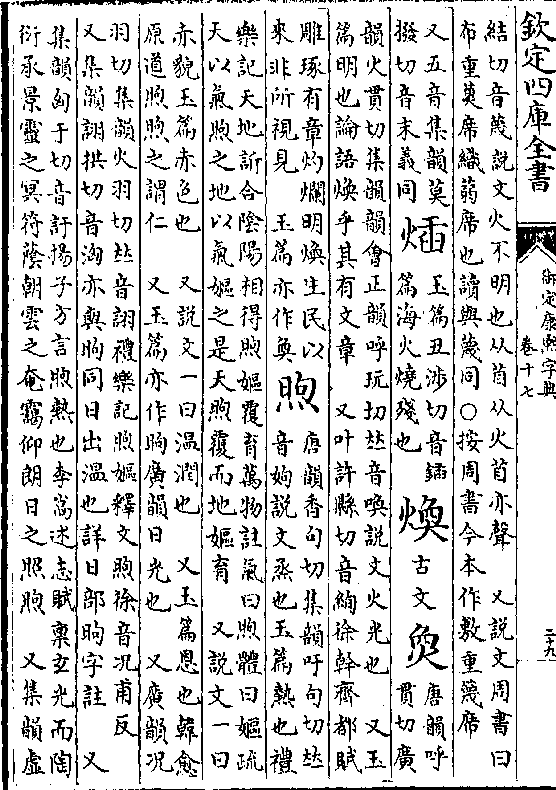 欽定四庫全書
御定康熙字典
卷十七
二十九
結切音蔑説文火不明也从苜从火苜亦聲　又説文周書曰
布重莫席織蒻席也讀與蔑同○按周書今本作敷重蔑席
又五音集韻莫
撥切音末義同
玉篇丑涉切音鍤
篇海火燒殘也
煥
古文
唐韻呼
貫切廣
韻火貫切集韻韻會正韻呼玩切𠀤音喚説文火光也　又玉
篇明也論語煥乎其有文章　又叶許縣切音絢徐幹齊都賦
雕琢有章灼爛明煥生民以
來非所視見　玉篇亦作奐
煦
唐韻香句切集韻吁句切𠀤
音姁説文烝也玉篇熱也禮
樂記天地訢合陰陽相得煦嫗覆育萬物註氣曰煦體曰嫗疏
天以氣煦之地以氣嫗之是天煦覆而地嫗育　又説文一曰
赤貌玉篇赤色也　又説文一曰温潤也　又玉篇恩也韓愈
原道煦煦之謂仁　又玉篇亦作昫廣韻日光也　又廣韻况
羽切集韻火羽切𠀤音詡禮樂記煦嫗釋文煦徐音况甫反
又集韻詡拱切音洶亦與昫同日出温也詳日部昫字註　又
集韻匈于切音訏揚子方言煦熱也李暠述志賦稟玄光而陶
衍承景靈之冥符蔭朝雲之菴靄仰朗日之照煦　又集韻虛